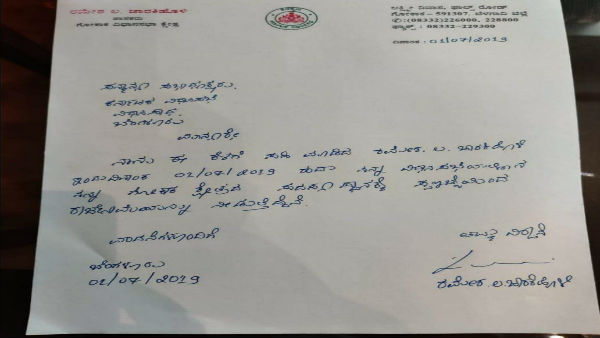 ರಮೇಶ ಲ. ಜಾರಕಿಹೊಳಿ
ಶಾಸಕರು
ಗೋಕಾಕ ವಿಧಾನಸಭಾ ಕ್ಷೇತ್ರ
ಲಕ್ಷ್ಮೀ ನಿವಾಸ, ಫಾಲ್ಸ್ ರೋಡ್
ಗೋಕಾಕ - 591307, ಬೆಳಗಾವಿ ಜಿಲ್ಲೆ
:(08332)226000, 228800
ಫ್ಯಾಕ್ಸ್ : 08332-229300
ದಿನಾಂಕ : 01/07/2019
ಸನ್ಮಾನ್ಯ ಸಭಾಧ್ಯಕ್ಷರು.
ಕರ್ನಾಟಕ ವಿಧಾನಸಭೆ
ವಿಧಾನಸೌಧ.
ಬೆಂಗಳೂರು
ಮಾನ್ಯರೇ,
ನಾನು ಈ ಕೆಳಗೆ ಸಹಿ ಮಾಡಿದ ರಮೇಶ. ಲ. ಜಾರಕಿಹೊಳಿ
ಇಂದು ದಿನಾಂಕ 01/07/2019 ರಂದು ನನ್ನ ವಿಧಾನಸಭೆಯ
ನನ್ನ ಗೋಕಾಕ ಕ್ಷೇತ್ರದ ಸದಸ್ಯ ಸ್ಥಾನಕ್ಕೆ ಸ್ವಇಚ್ಛೆಯಿಂದ
ರಾಜೀನಾಮೆಯನ್ನು ನೀಡುತ್ತಿದ್ದೇನೆ.
ವಂದನೆಗಳೊಂದಿಗೆ
ತಮ್ಮ ವಿಶ್ವಾಸಿ
ಬೆಂಗಳೂರು
01/07/2019
ರಮೇಶ. ಲ. ಜಾರಕಿಹೊಳಿ